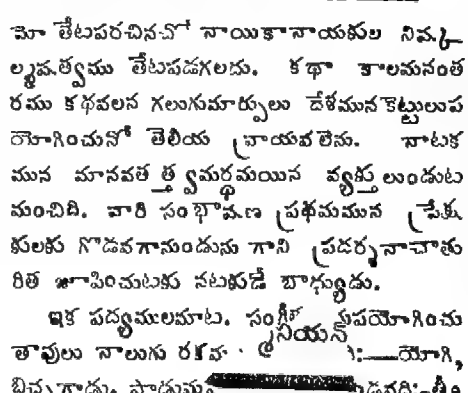 మో తేటపరచినచో నాయికానాయకుల నిష్క
ల్మషత్వము తేటపడగలదు. కథా కాలమనంత
రము కథవలన గలుగుమార్పులు దేశమున కెట్టులుప
యోగించునో తెలియ వ్రాయవలెను. నాటక
మున మానవతత్త్వమర్థమయిన వ్యక్తు లుండుట
మంచిది. వారి సంభాషణ ప్రథమమున ప్రేక్ష
కులకు గొడవగానుండును గాని ప్రదర్శనాచాతు
రిత జూపించుటకు నటకుడే బాధ్యుడు.
ఇక పద్యములమాట. సంగీత ముపయోగించు
తావులు నాలుగు రకము :—యోగి,
బిచ్చగాడు,